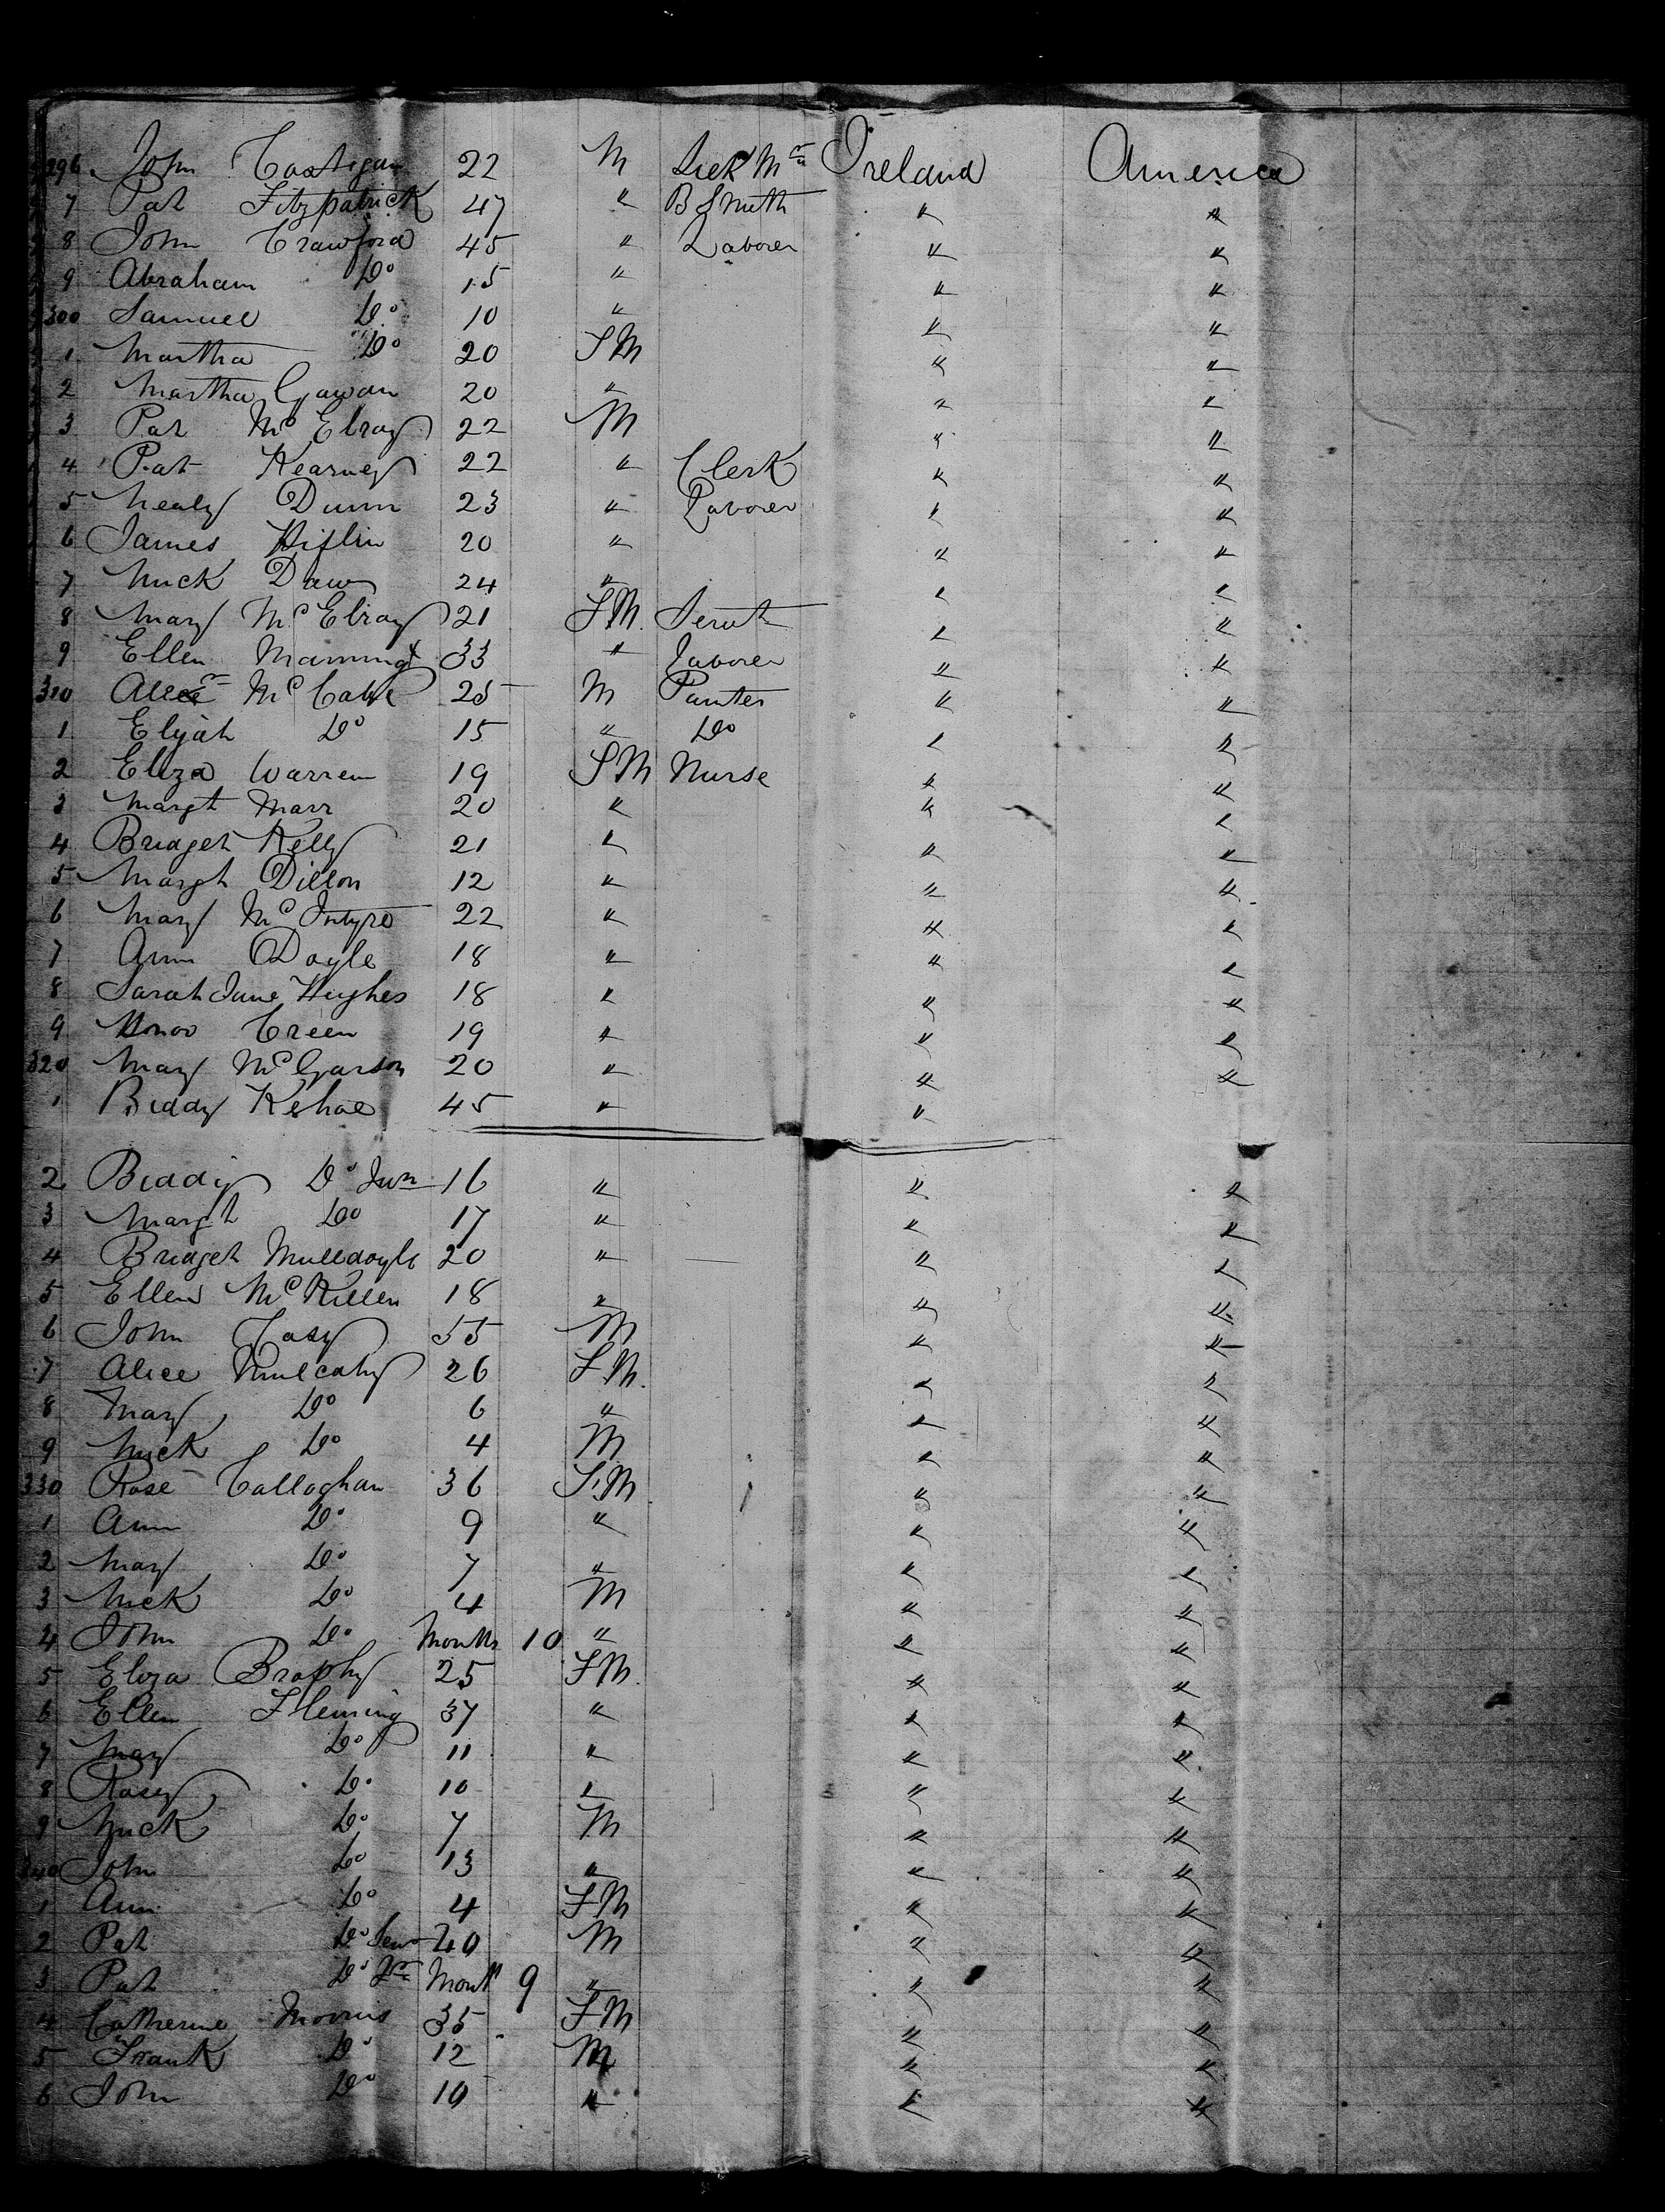 296 John Costigan 22 M Ireland America
7 Pat Fitzpatrick 47 " B Smith " "
8 John Crawford 45 " Laborer " "
9 Abraham Do 15 " " "
300 Samuel Do 10 " " "
1 Martha Do 20 FM " "
2 Martha Gawan 20 " " "
3 Pat Mc Elroy 22 M " "
4 Pat Kearney 22 " Clerk " "
5 Healy Dunn 23 " Laborer " "
6 James 20 " " "
7 Mick Daw 24 " " "
8 Mary Mc Elroy 21 FM Servt " "
9 Ellen Manning 33 " Laborer " "
310 Mc Cabe 25 M Painter " "
1 Elijah Do 15 " Do " "
2 Eliza Warren 19 FM Nurse " "
3 Margt Marr 20 " " "
4 Bridget Kelly 21 " " "
5 Margt Dillon 12 " " "
6 Mary Mc Intyre 22 " " "
7 Ann Doyle 18 " " "
8 Sarah Jane Hughes 18 " " "
9 Honor Green 19 " " "
320 Mary Mc Garson 20 " " "
1 Biddy Kehoe 45 " "
2 Biddy Do Junr 16 " " "
3 Margt Do 17 " " "
4 Bridget Mulldoyle 20 " " "
5 Ellen Mc Killen 18 " " "
6 John Casy 55 M " "
7 Alice Mulcahy 26 FM " "
8 Mary Do 6 " " "
9 Mick Do 4 M " "
330 Rose Callaghan 36 FM " "
1 Ann Do 9 " " "
2 Mary Do 7 " " "
3 Mick Do 4 M " "
4 John Do Months 10 " " "
5 Eliza Brophy 25 FM " "
6 Ellen Fleming 37 " " "
7 Mary Do 11 " " "
8 Rosey Do 10 " " "
9 Mick Do 7 M " "
340 John Do 13 " " "
1 Ann Do 4 FM " "
2 Pat Do Senr 40 M " "
3 Pat Do Jr Month 9 " " "
4 Catherine Morris 35 FM " "
5 Frank Do 12 M " "
6 John Do 10 " " "